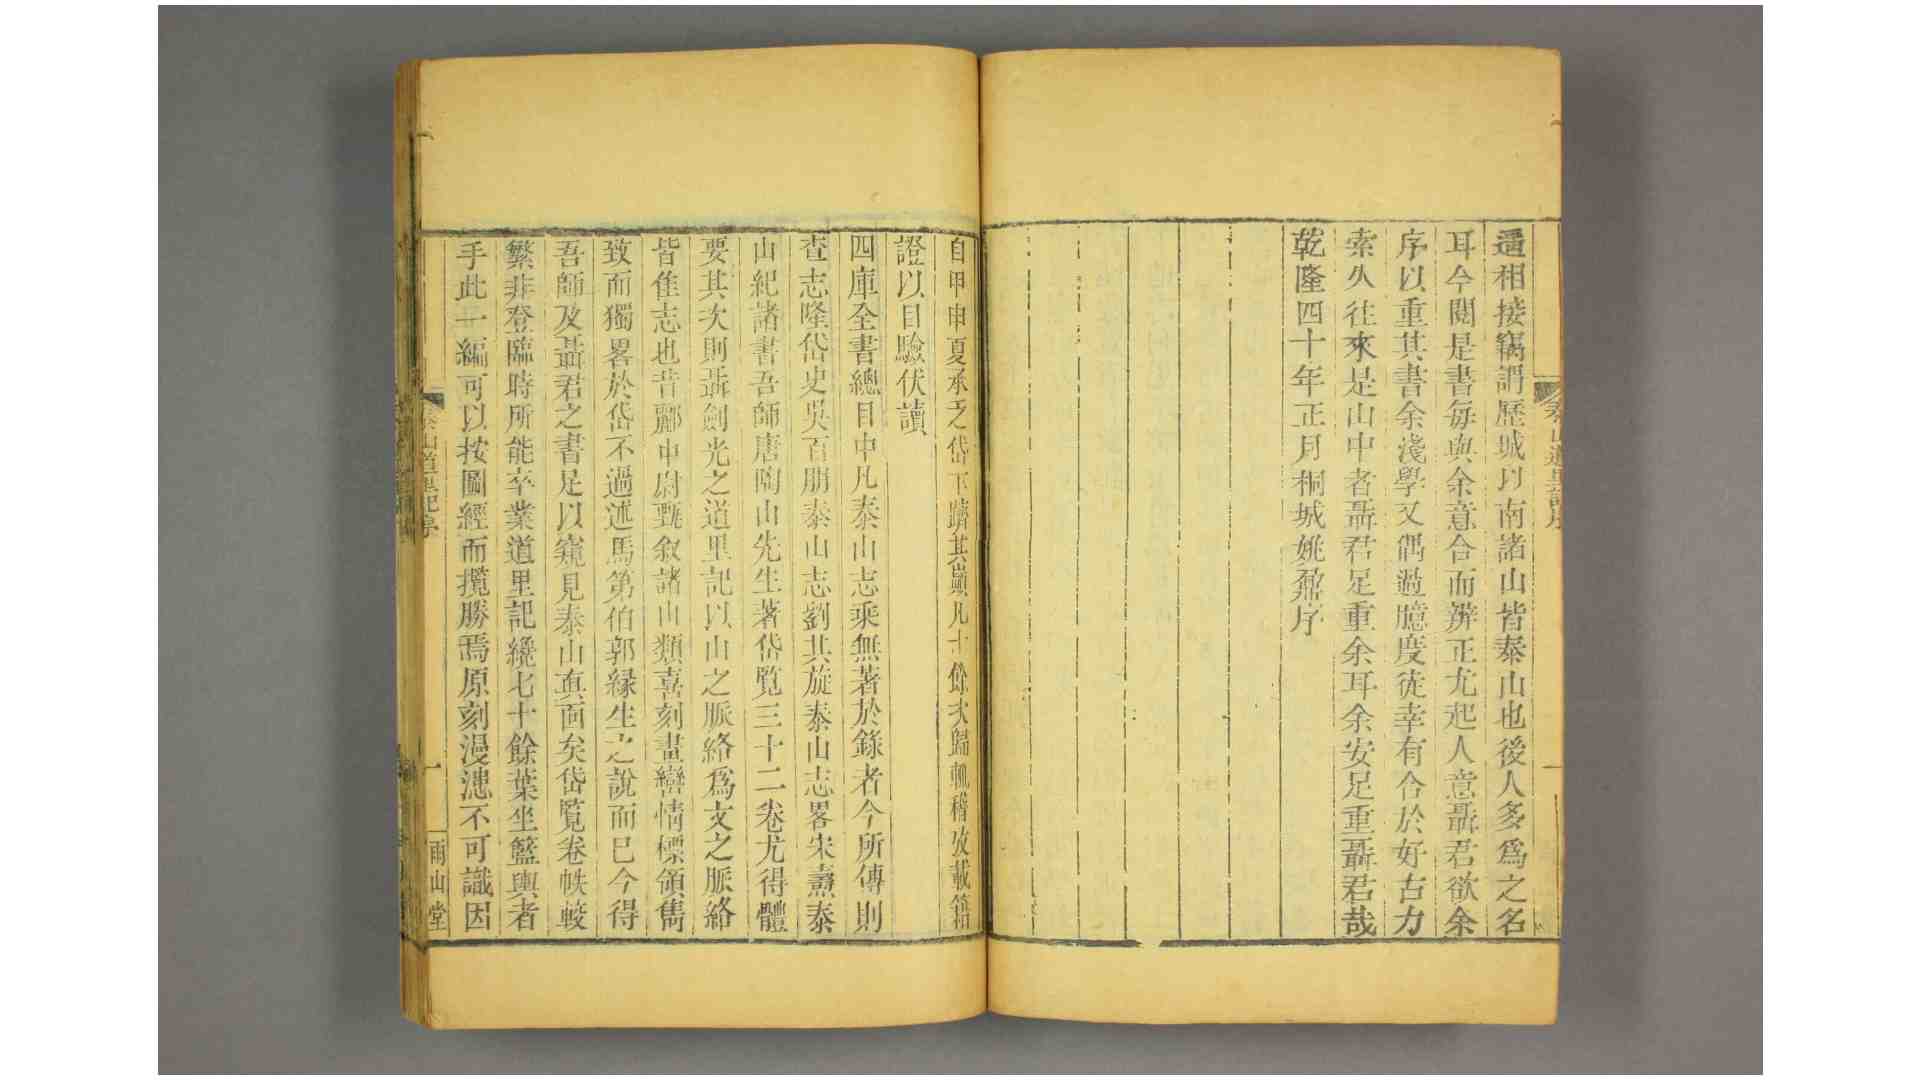 泰山道里記序
一
遥相接竊謂歷城以南諸山皆泰山也後人多為之名
耳今閱是書每與余意合而辨正尤起人意聶君欲余
序以重其書余淺學又偶過臆度徒幸有合於好古力
索久往來是山中者聶君足重余耳余安足重聶君哉
乾隆四十年正月桐城姚鼐序
自甲申夏承乏岱下躋其巔凡十餘次歸輒稽攷載籍
證以目驗伏讀
四庫全書總目中凡泰山志乘無著於錄者今所傳則
查志隆岱史吳百朋泰山志劉其旋泰山志畧宋燾泰
山紀諸書吾師唐陶山先生著岱覧三十二卷尤得體
要其次則聶劍光之道里記以山之脈絡為文之脈絡
皆隹志也昔酈中尉甄敘諸山類喜刻畫巒情標領雋
致而獨畧於岱不過述馬第伯郭緣生之說而巳今得
吾師及聶君之書足以窺見泰山真面矣岱覧卷帙較
繁非登臨時所能卒業道里記纔七十餘葉坐籃輿者
手此一編可以按圖經而攬勝焉原刻漫漶不可識因
泰山道里記序
一
雨山堂